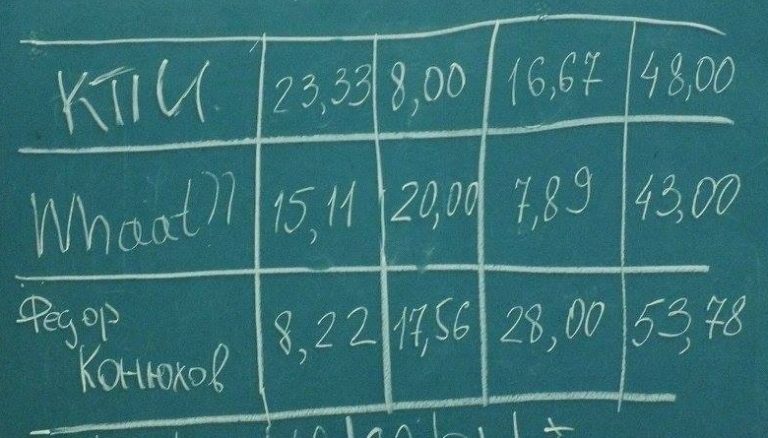 КПИ 23,33 8,00 16,67 48,00
Whaat?? 15,11 20,00 7,89 43,00
Федор
Конюхов 8,22 17,56 28,00 53,78